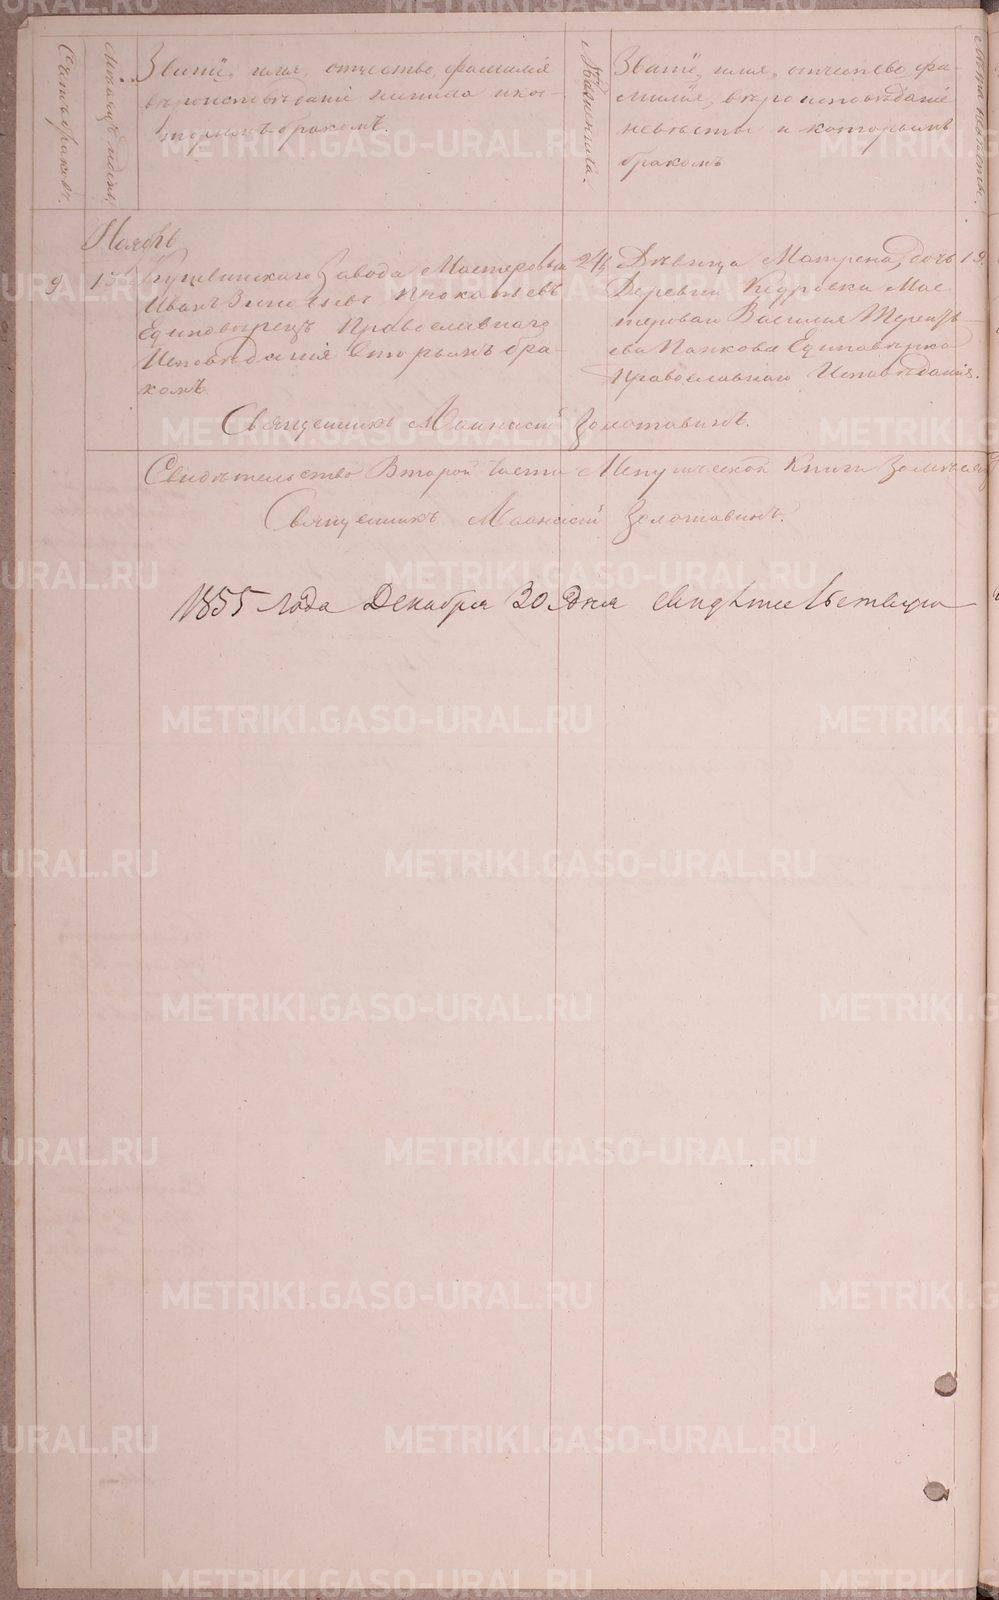 Счетъ браковъ.
Мѣсяцъ и день,
Званіе, имя, отчество, фамилія
вѣроисповѣданіе жениха и ко-
торымъ бракомъ.
Лѣта жениха.
Званіе, имя, отчество, фа-
милія, вѣроисповѣданіе
невѣсты и которымъ
бракомъ
Лѣта невѣсты.
Ноябрь
9
13
Кушвинскаго Завода Мастеровый
Иванъ
Единовѣрецъ Православнаго
Исповѣданія Вторымъ бра-
комъ
24
Дѣвица Матрена, дочь
Деревни Кедровки Мас-
тероваго Василія Терентѣ-
ева Панкова Единовѣрка
Православнаго Исповѣданія.
19.
Священникъ Манасій Золотавинъ.
Свидѣтельство Второй части Метрической Книги
Священникъ Манасій Золотавинъ.
1855 года Декабря 30 дня
METRIKI.GASO-URAL.RU